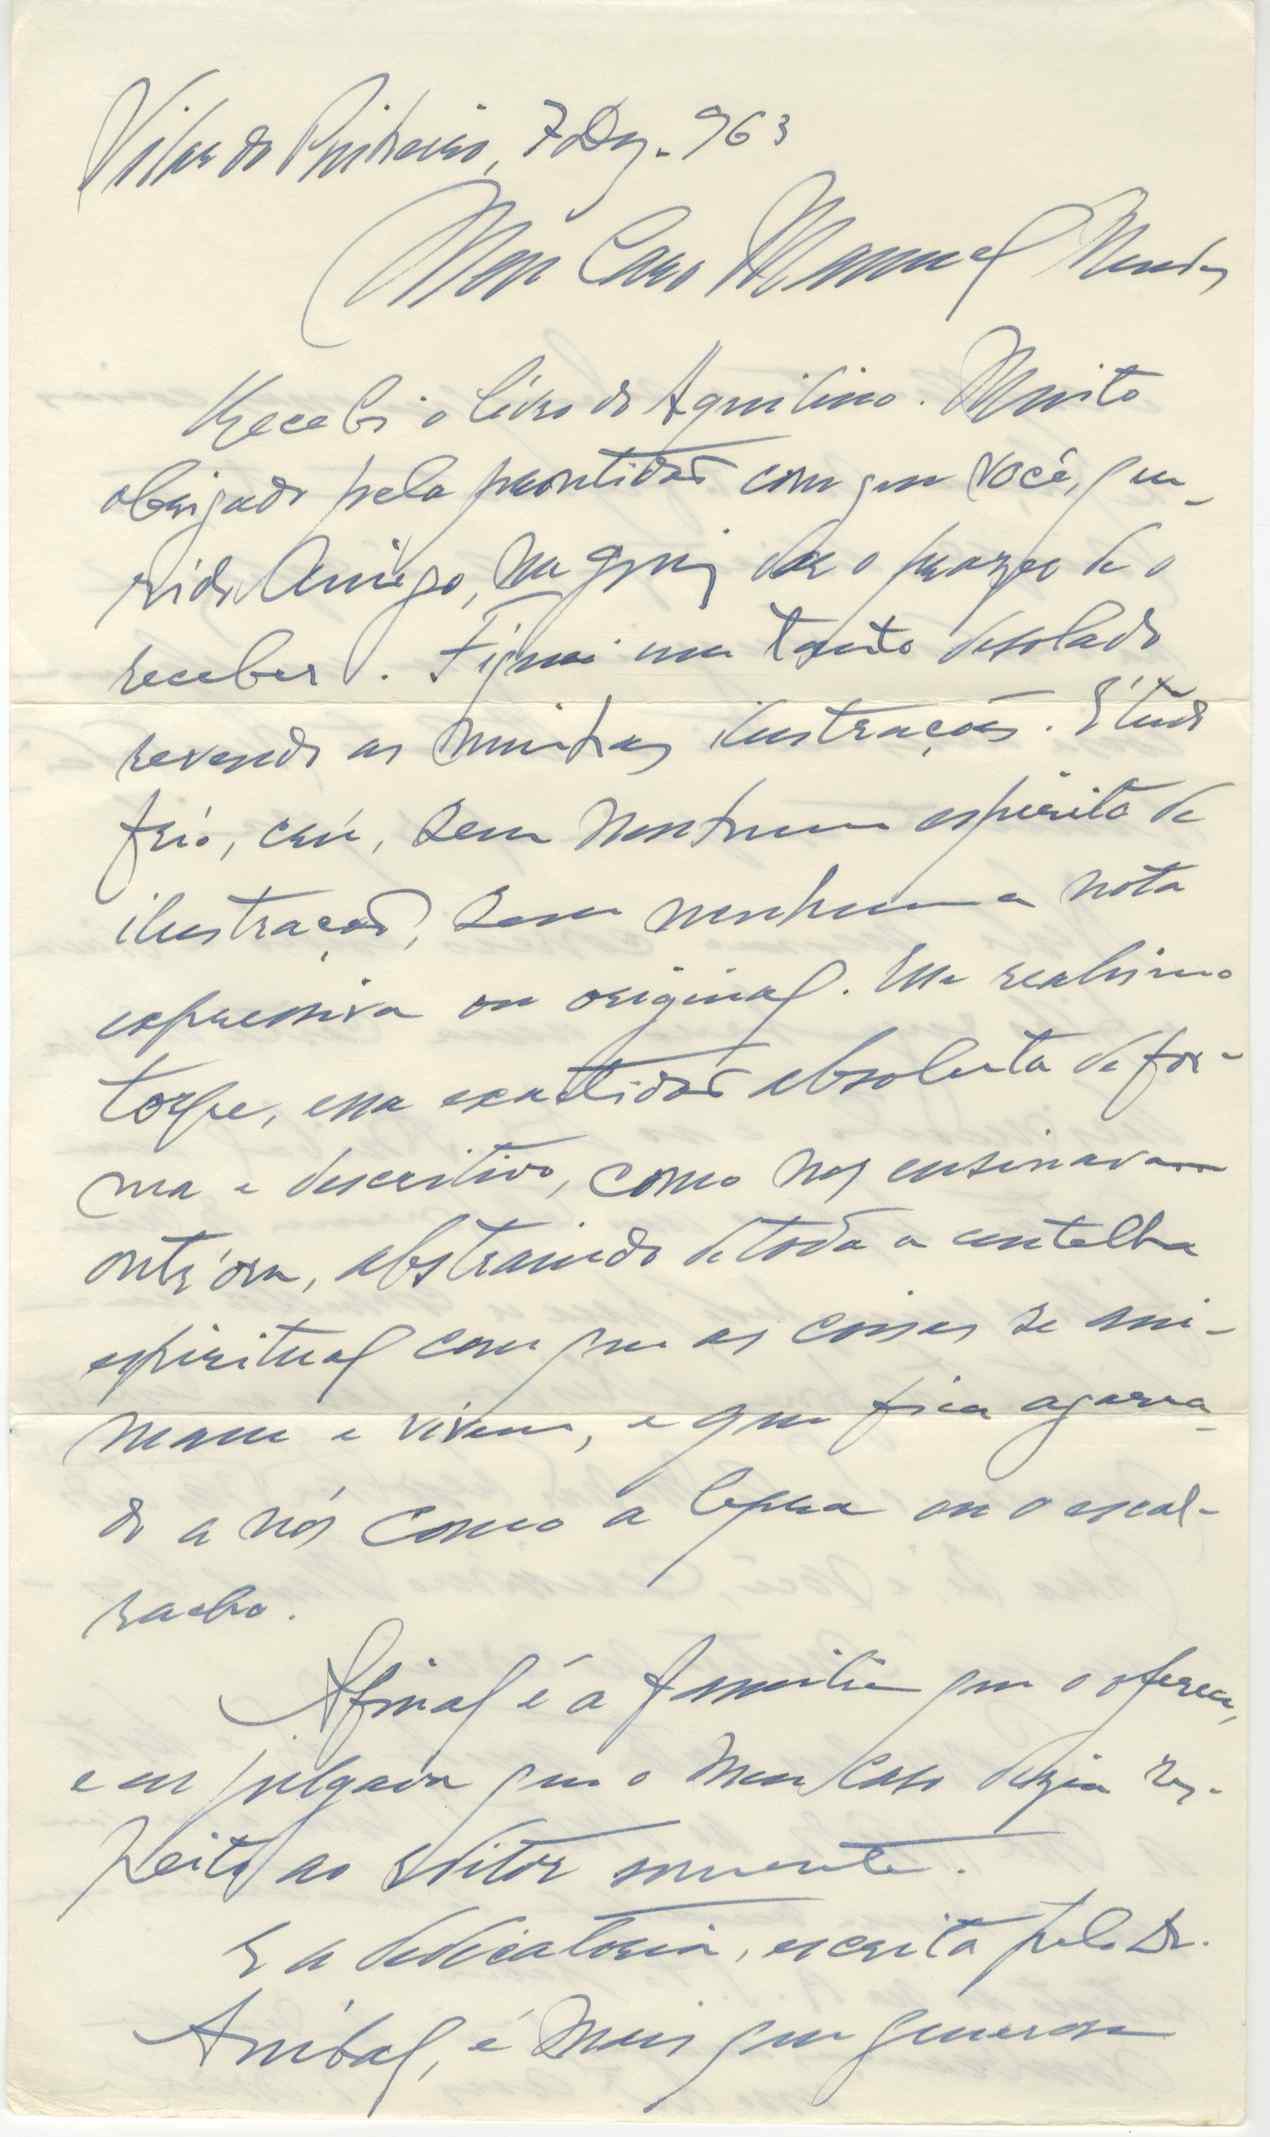 Vilar do Pinheiro, 7 Dez. 963
Meu Caro Manuel Mendes
Recebi o livro do Aquilino. Muito
obrigado pela prontidão com que você, que-
rido Amigo, me quis dar o prazer de o
receber. Fiquei um tanto desolado
revendo as minhas ilustrações. É tudo
frio, cru, sem nenhum espirito de
ilustração, sem nenhuma nota
expressiva ou original. Um realismo
torpe, uma exactidão absoluta de for-
ma e descritivo, como nos ensinavam
outr'ora, abstraindo de toda a centelha
espiritual com que as coisas se ani-
mam e vivem, e que fica agarra-
do a nós como a lepra ou o escal-
racho.
Afinal é a familia que o oferece,
e eu julgava que o meu caso dizia res-
peito ao editor somente.
E a dedicatoria, escrita pelo Dr.
Anibal, é mais que generosa